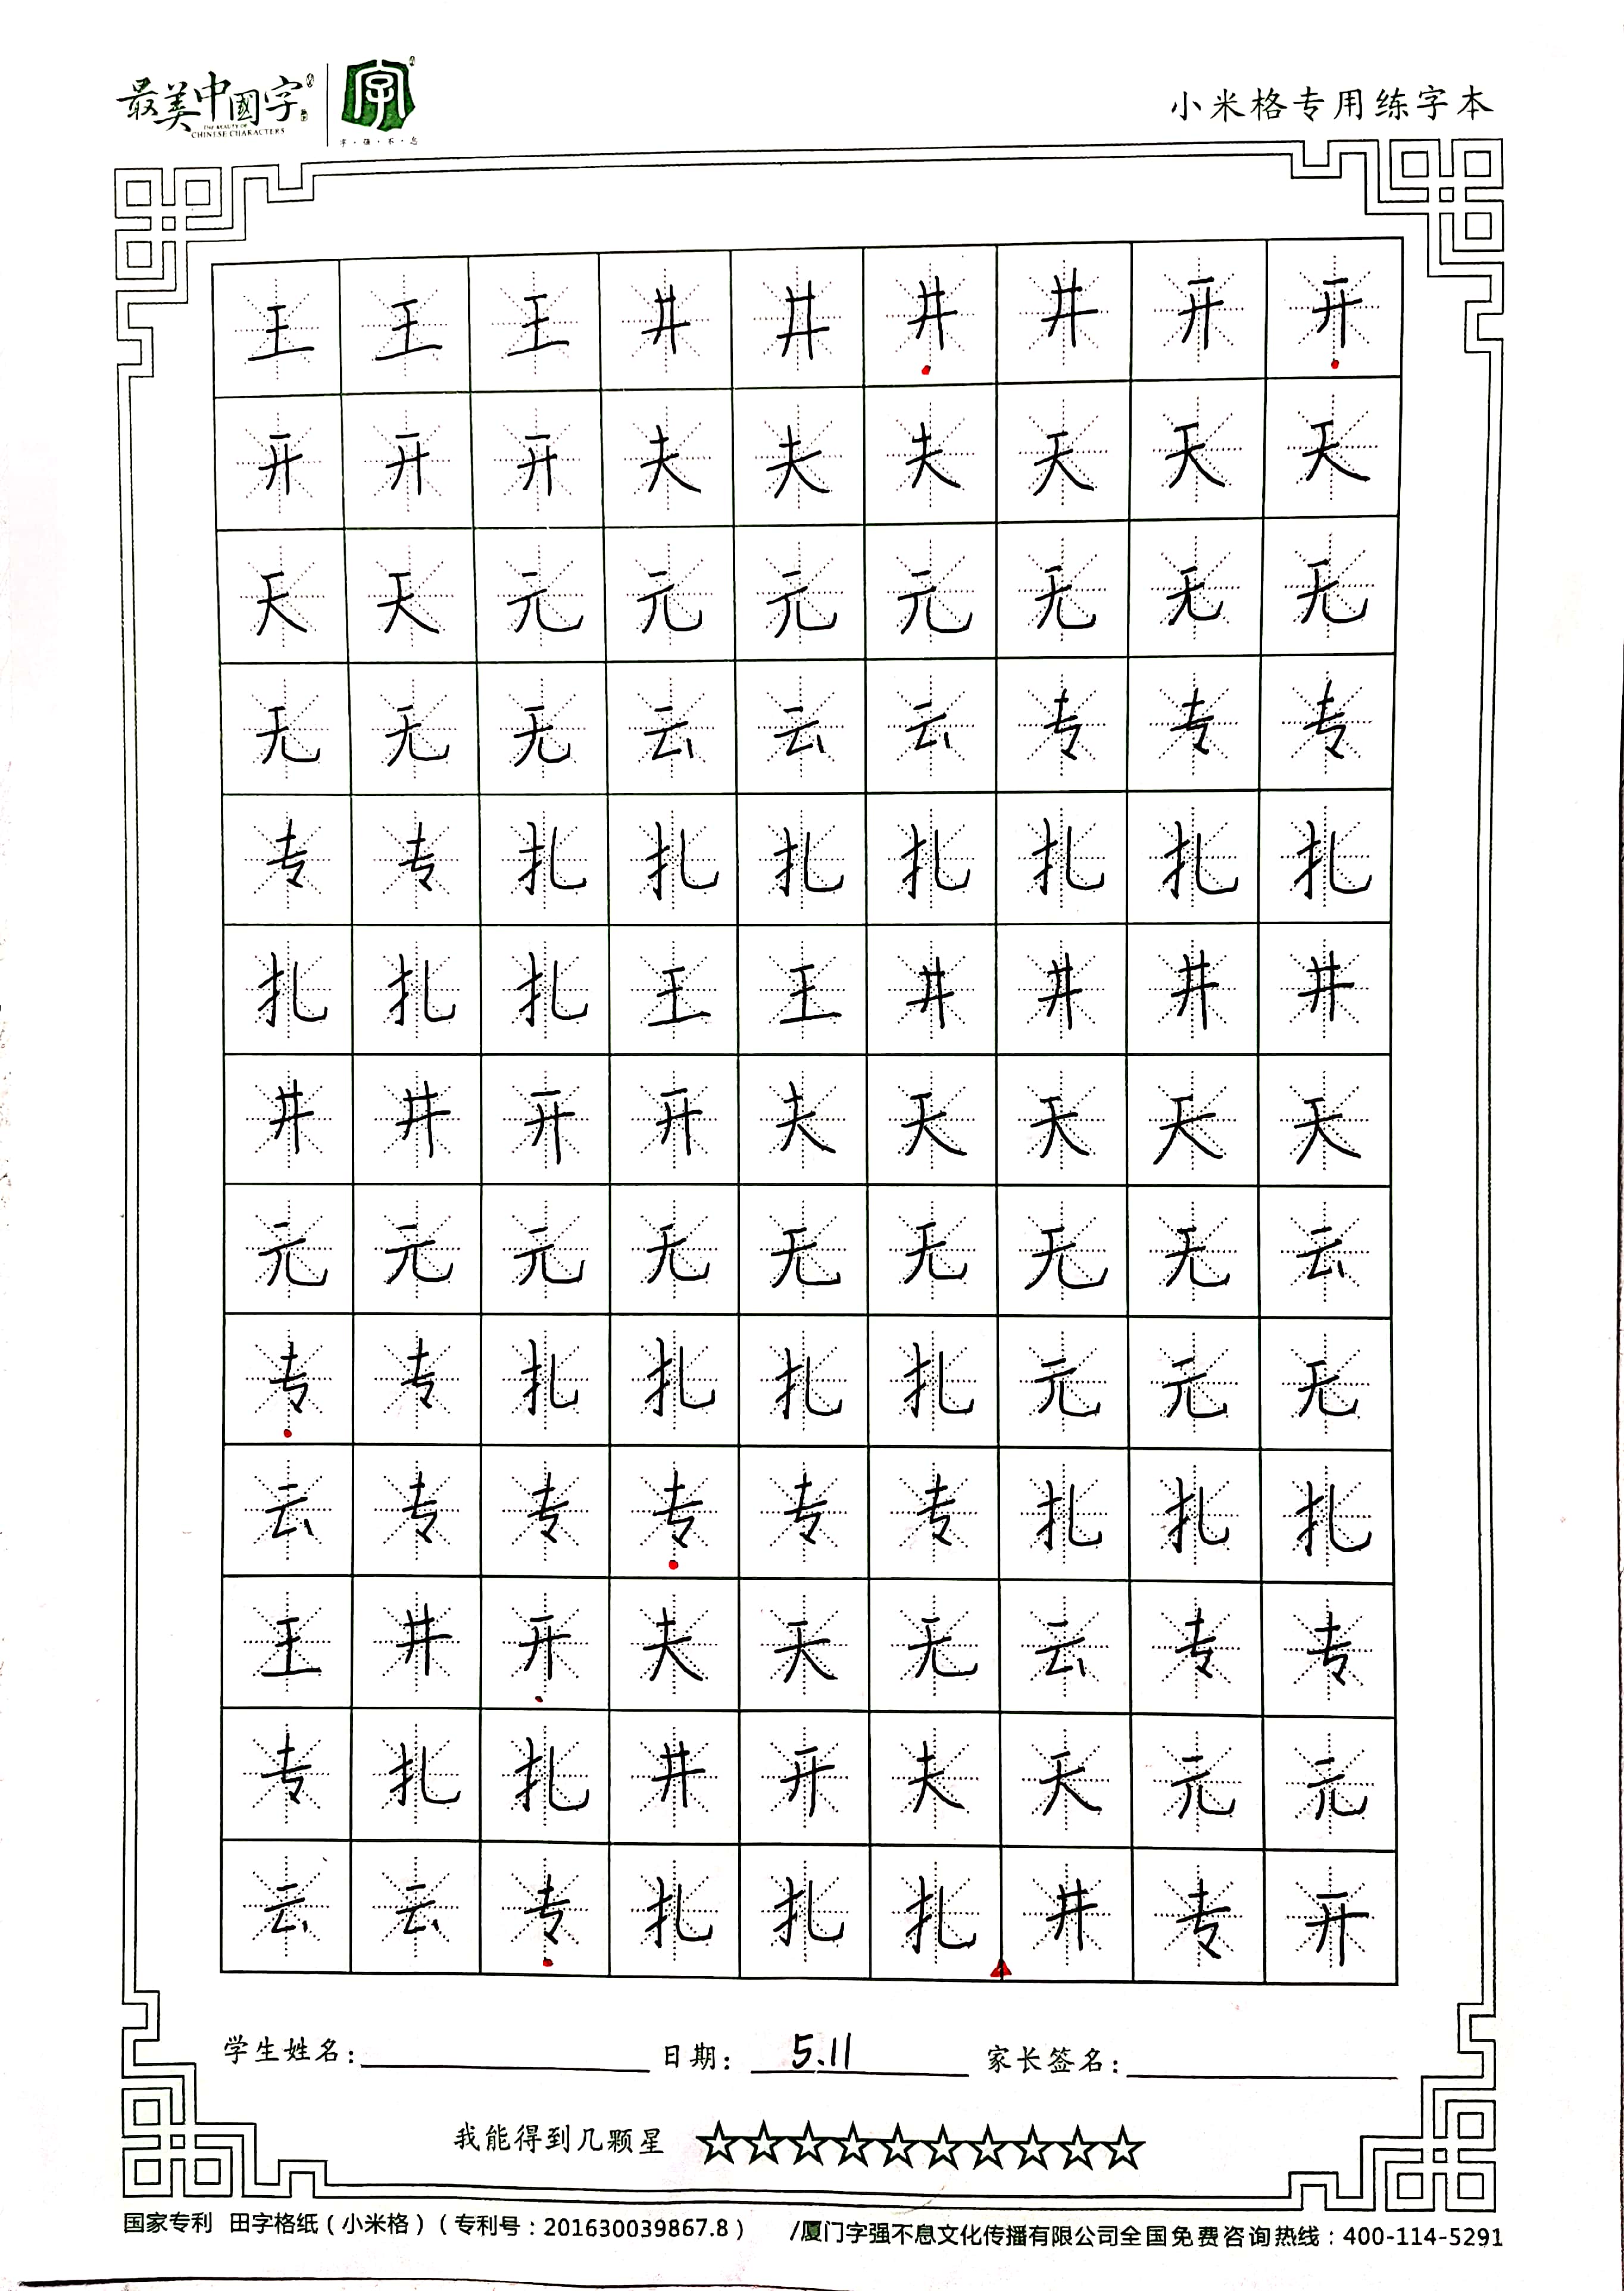 最美中國字
THE BEAUTY OF
CHINESE CHARACTERS
字
字·强·不·息
小米格专用练字本
王王王井井井井开开
开开开夫夫夫天天天
天天元元元元无无无
无无无云云云专专专
专专扎扎扎扎扎扎扎
扎扎扎王王井井井井
井井开开夫天天天天
元元元无无无无无云
专专扎扎扎扎元元无
云专专专专专扎扎扎
王井开夫天无云专专
专扎扎井开夫天元元
云云专扎扎扎井专开
学生姓名: 日期: 5.11 家长签名:
我能得到几颗星 ☆☆☆☆☆☆☆☆☆☆
国家专利 田字格纸(小米格)(专利号:201630039867.8) /厦门字强不息文化传播有限公司全国免费咨询热线:400-114-5291